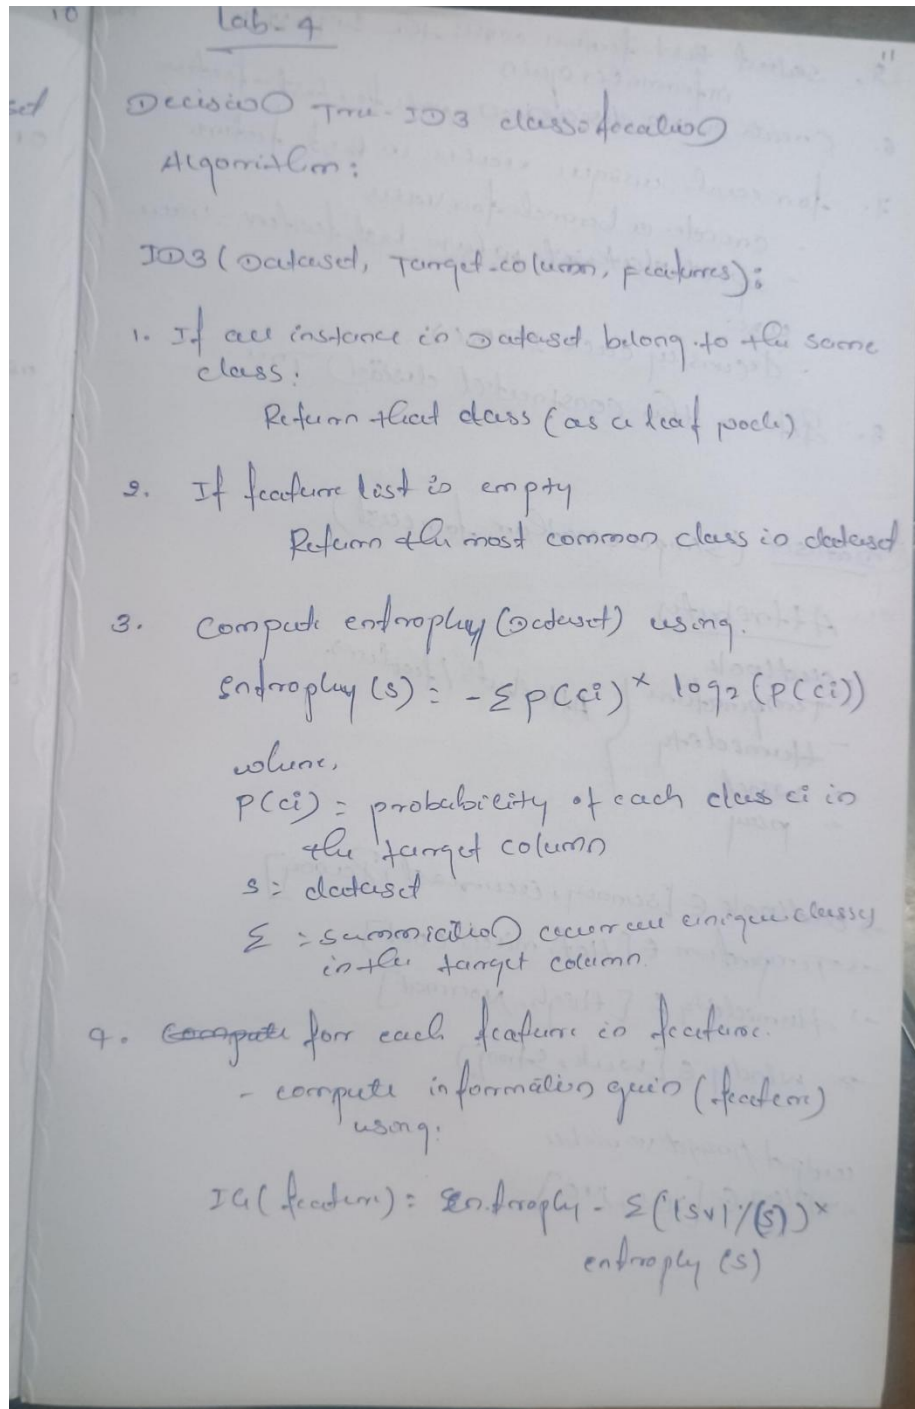 10
Lab-4
11
Decision Tree-ID3 classification
Algorithm:
ID3(Dataset, Target-column, Features):
1. If all instance in Dataset belong to the same
class:
Return that class (as a leaf node)
2. If feature list is empty
Return the most common class in dataset
3. Compute entrophy (Dataset) using.
Entrophy (s) = - Σ p(ci) * log2 (p(ci))
where,
p(ci) = probability of each class ci in
the target column
s = dataset
Σ = summation over all unique classes
in the target column.
4. Compute for each feature in feature.
- compute information gain (feature)
using:
IG(feature) = Entrophy - Σ(|sv|/|s|) *
entrophy (s)